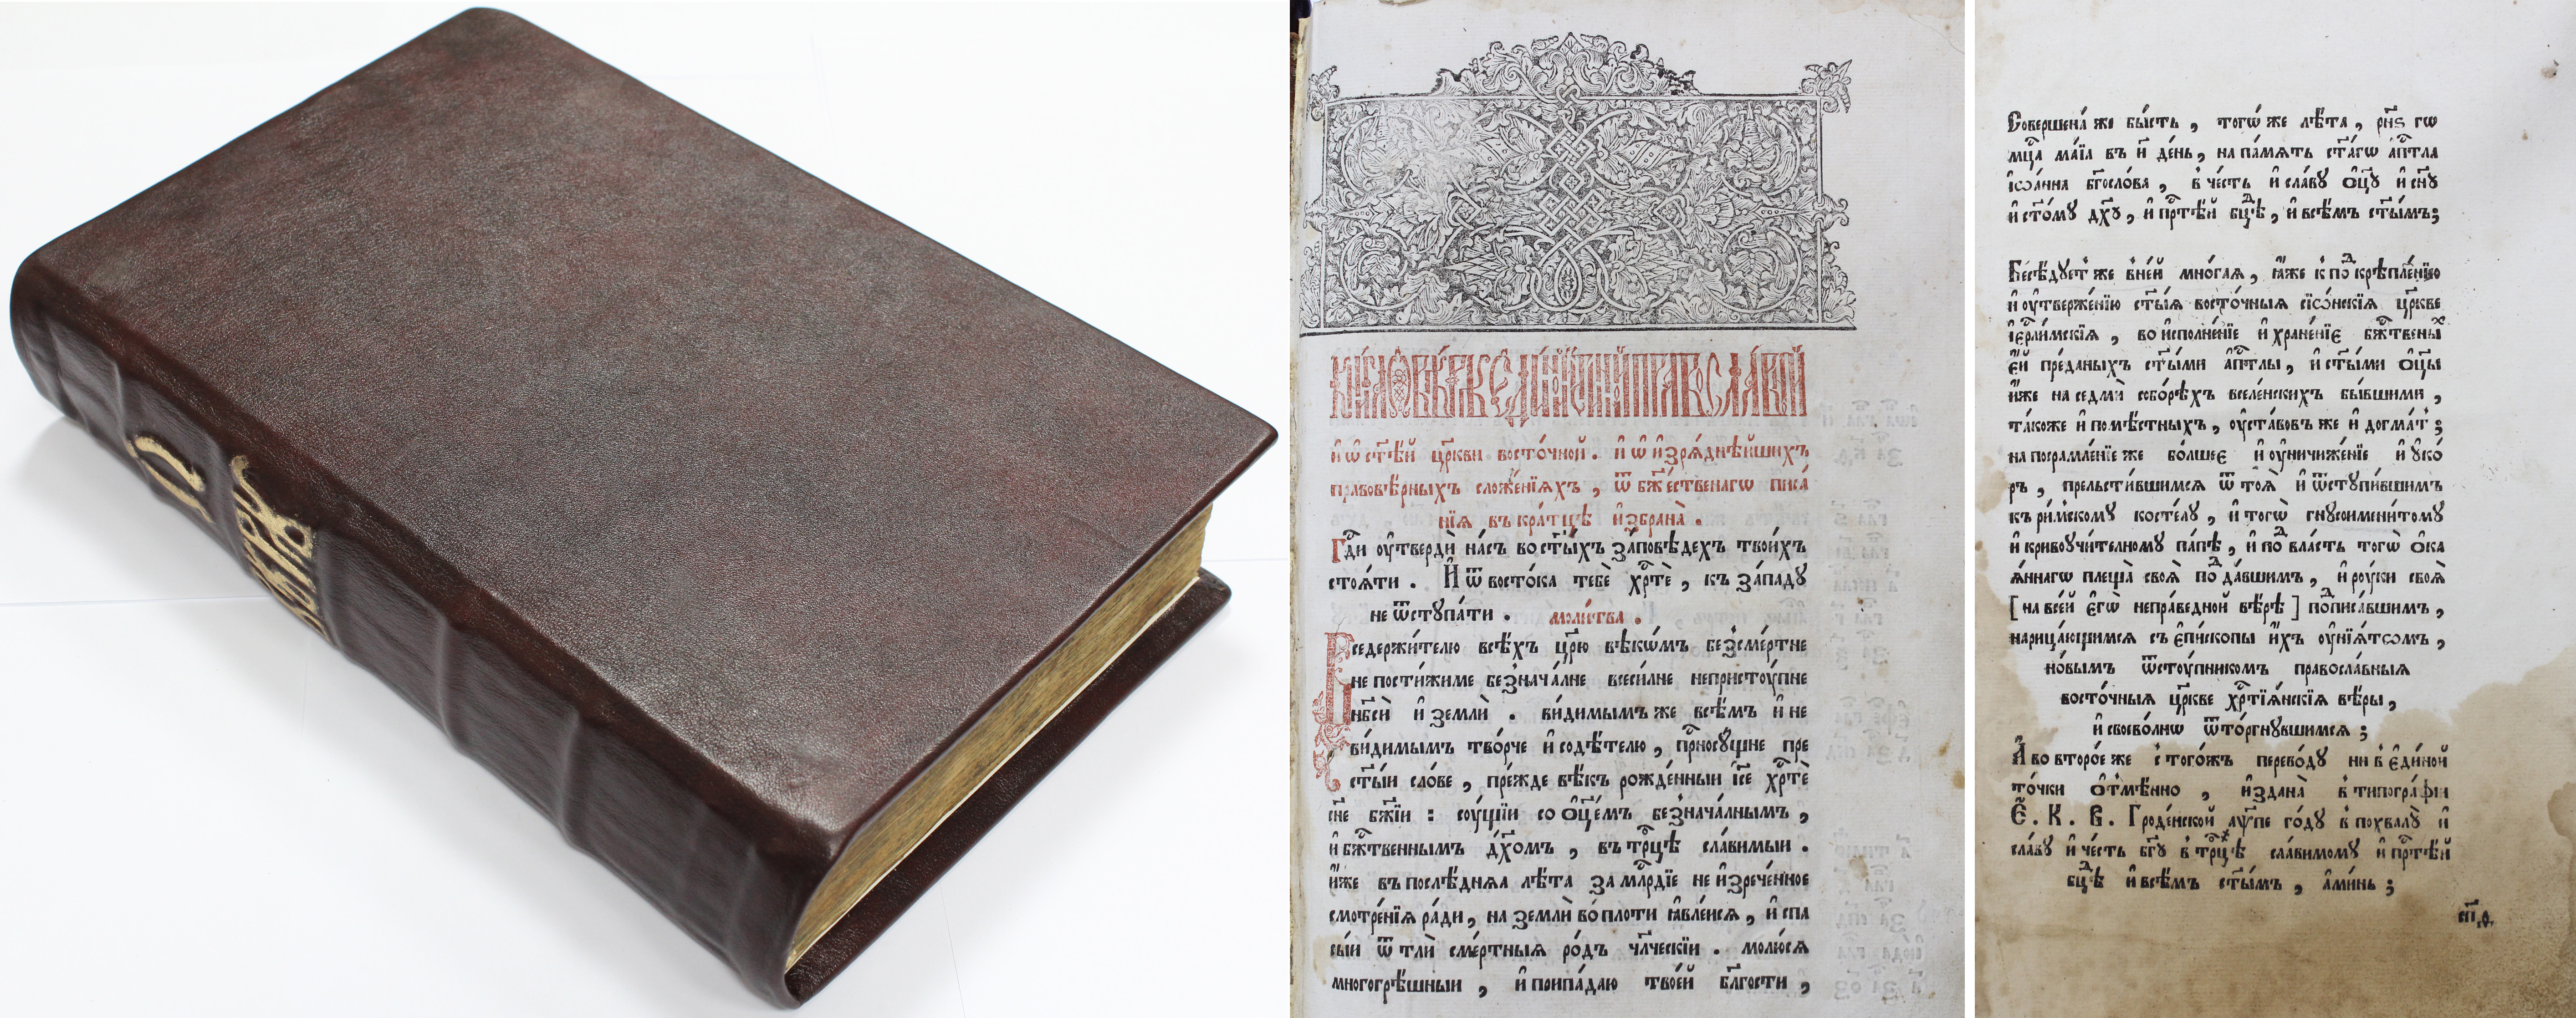 О
вѣрѣ
КНИ́ГА Ѡ ВѢ́РѢ ЄДИ́НОЙ И́СТИННОЙ ПРАВОСЛА́ВНОЙ
и҆ ѡ҆ ст҃ѣ́й цр҃кви восто́чной . и҆ ѡ҆ и҆зря́днѣйшихъ
правовѣ́рныхъ сложе́нїихъ , ѿ бж҃е́ственагѡ писа́
нїѧ въ кра́тцѣ и҆збрана̀ .
Гд҃и оу҆твердѝ на́съ во ст҃ы́хъ за́повѣдехъ твои́хъ
стоѧ́ти . И҆ ѿ восто́ка тебѐ хр҃тѐ , къ за́падꙋ
не ѿстꙋпа́ти . моли́тва .
Вседержи́телю всѣ́хъ цр҃ю вѣкѡ́мъ безсме́ртне
не пости́жиме безнача́лне всеси́лне непристꙋ́пне
нб҃сѝ и҆ землѝ . ви́димымъ же всѣ́мъ и не
ви́димымъ тво́рче и҆ содѣ́телю , пр҃носꙋ́щне пре
ст҃ы́и сло́ве , пре́жде вѣ́къ рожде́нныи і҆с҃е хр҃тѐ
сн҃е бж҃їи : соу́щїи со ѻ҆ц҃е́мъ безнача́лнымъ ,
и҆ бж҃твеннымъ дх҃омъ , въ тр҃цѣ сла́вимыи .
и҆́же въ послѣ́днѧѧ лѣ́та за мл҃рдїе не и҆зрече́нное
смотре́нїѧ ра́ди , на землѝ во пло́ти ꙗ҆вле́исѧ , и҆ спа
сы́и ѿ тлѝ сме́ртныѧ ро́дъ чл҃ческїи . молю́сѧ
многогрѣ́шныи , и҆ припа́даю твое́й бл҃гости ,
Соверше́на же бы́сть , тогѡ́ же лѣ́та , рн҃ѕ гѡ
мц҃а ма́їа въ и҃ де́нь , на па́мѧть ст҃а́гѡ а҆пⷭ҇тла
і҆ѡа́нна бг҃осло́ва , в че́сть и҆ сла́вꙋ ѻ҆ц҃ꙋ и҆ сн҃ꙋ
и҆ ст҃о́мꙋ дх҃ꙋ , и҆ пр҃тѣ́й бцⷣѣ , и҆ всѣ́мъ ст҃ы́мъ ;
Бесѣ́дꙋет же в не́й мно́гаѧ , ꙗ҆́же к поⷣкрѣпле́нїю
и҆ оу҆тверже́нїю ст҃ы́ѧ восто́чныѧ сїѡ́нскїѧ цр҃кве
і҆ерⷭ҇ли́мскїѧ , во и҆сполне́нїе и҆ хране́нїе бжⷭ҇твеныⷯ
е҆́й пре́даныхъ ст҃ы́ми а҆пⷭ҇тлы , и҆ ст҃ы́ми ѻ҆ц҃ы
и҆́же на седмѝ собо́рѣхъ вселе́нскихъ бы́вшими ,
та́коже и҆ помѣ́стныхъ , оу҆ста́вовъ же и҆ догма́т ;
на посрамле́нїе же бо́лшее и҆ оу҆ничиже́нїе и҆ ꙋ҆ко́
ръ , прельсти́вшимсѧ ѿ тоѧ̀ и҆ ѿстꙋпи́вшимъ
къ ри́мскомꙋ косте́лꙋ , и҆ тогѡ̀ гнꙋсоимени́томꙋ
и҆ кривоучи́телномꙋ па́пѣ , и҆ поⷣ вла́сть тогѡ̀ ѻ҆ка
ѧ́ннагѡ плеща̀ своѧ̀ поⷣда́вшимъ , и҆ рꙋ́ки своѧ̀
[ на все́й е҆гѡ̀ непра́ведной вѣ́рѣ ] поⷣписа́вшимъ ,
нарица́ющимсѧ съ е҆пи́скопы и҆́хъ оу҆нїѧ́тѡмъ ,
но́вымъ ѿстꙋ́пникомъ правосла́вныѧ
восто́чныѧ цр҃кве хрⷭ҇тїѧ́нскїѧ вѣ́ры ,
и҆ своево́лнѡ ѿто́ргнꙋвшимсѧ ;
А҆ во второ́е же с того́жъ перево́дꙋ ни в є҆ди́ной
то́чки ѻ҆тмѣ́нно , и҆здана̀ в типогра́фїи
Є҆ . К . В . Гроде́нской аѱ҃пе го́дꙋ в похвалꙋ̀ и҆
сла́вꙋ и҆ че́сть бг҃ꙋ в тр҃цѣ сла́вимомꙋ и҆ пр҃тѣ́й
бцⷣѣ и҆ всѣ́мъ ст҃ы́мъ , а҆ми́нь ;